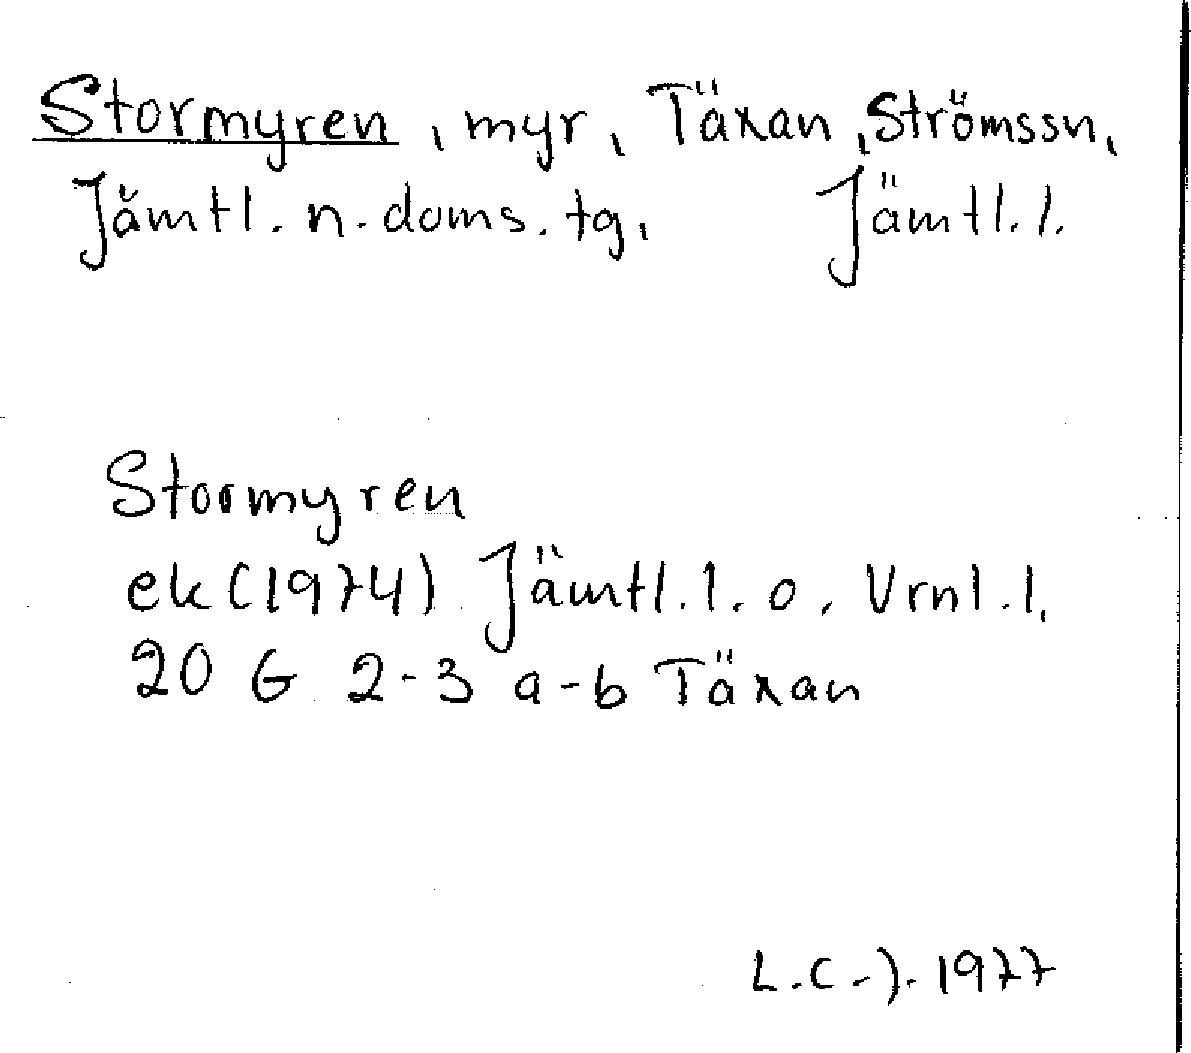 Stormyren, myr, Täxan, Strömssn,
Jämtl. n. doms. tg, Jämtl. l.
Stormyren
ek (1974) Jämtl. l. o. Vrnl. l.
20 G 2-3 a-b Täxan
L.C-J. 1977